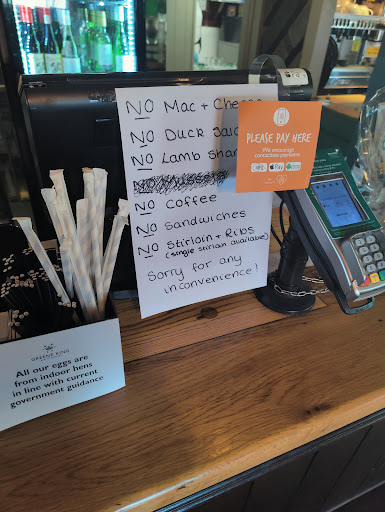 NO Mac + Cheese
NO Duck
NO Lamb
NO Coffee
NO Sandwiches
NO Stirloin + Ribs
(single stirloin available)
Sorry for any
inconvenience!
PLEASE PAY HERE
We encourage
contactless payments
Pay
GREENE KING
All our eggs are
from indoor hens
in line with current
government guidance